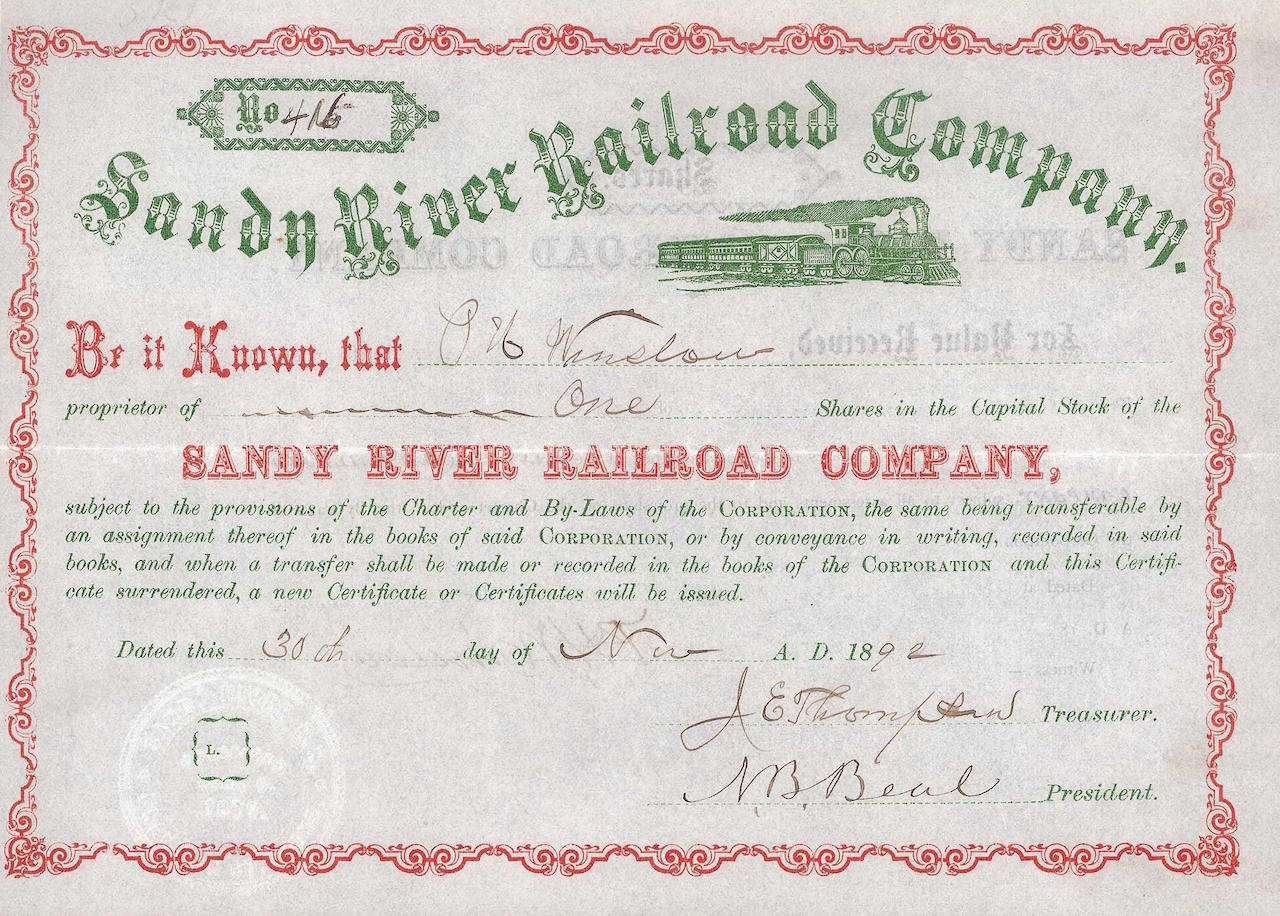 No 416
Sandy River Railroad Company.
Be it Known, that P H Winslow
proprietor of One Shares in the Capital Stock of the
SANDY RIVER RAILROAD COMPANY,
subject to the provisions of the Charter and By-Laws of the CORPORATION, the same being transferable by
an assignment thereof in the books of said CORPORATION, or by conveyance in writing, recorded in said
books, and when a transfer shall be made or recorded in the books of the CORPORATION and this Certifi-
cate surrendered, a new Certificate or Certificates will be issued.
Dated this 30th day of Nov A. D. 1892
J E Thompson Treasurer.
L.
N. B. Beal President.